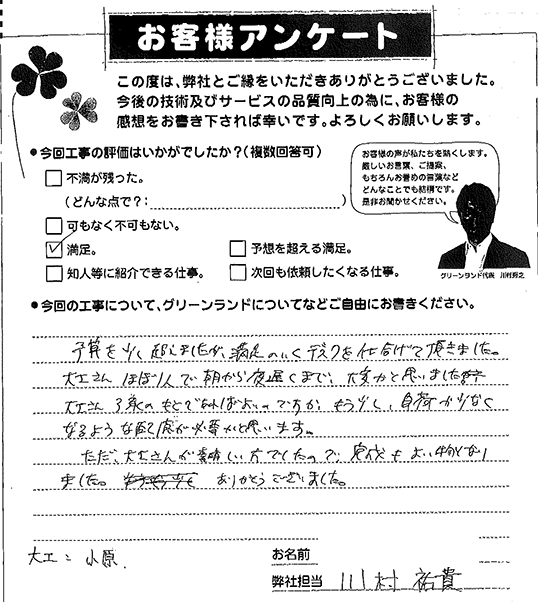 お客様アンケート
この度は、弊社とご縁をいただきありがとうございました。
今後の技術及びサービスの品質向上の為に、お客様の
感想をお書き下されば幸いです。よろしくお願いします。
●今回工事の評価はいかがでしたか？（複数回答可）
不満が残った。
（どんな点で？： ）
可もなく不可もない。
満足。
予想を超える満足。
知人等に紹介できる仕事。
次回も依頼したくなる仕事。
お客様の声が私たちを動くします。
厳しいお言葉、ご提案、
もちろんお誉めの言葉など
どんなことでも結構です。
是非お聞かせください。
グリーンランド代表 川村
●今回の工事について、グリーンランドについてなどご自由にお書きください。
予算を少し超えましたが、満足のいくデスクを仕上げて頂きました。
大工さん ほぼ1人で朝から夜遅くまで、大変かと思いました
大工さん 了承のもとであればよいのですが、もう少し、負荷が少なく
なるような配慮が必要かと思います。
ただ、大工さんが素晴しい方でしたので、完成もよい物になり
ました。 ありがとうございました。
大工：小原
お名前
弊社担当 川村 祐貴